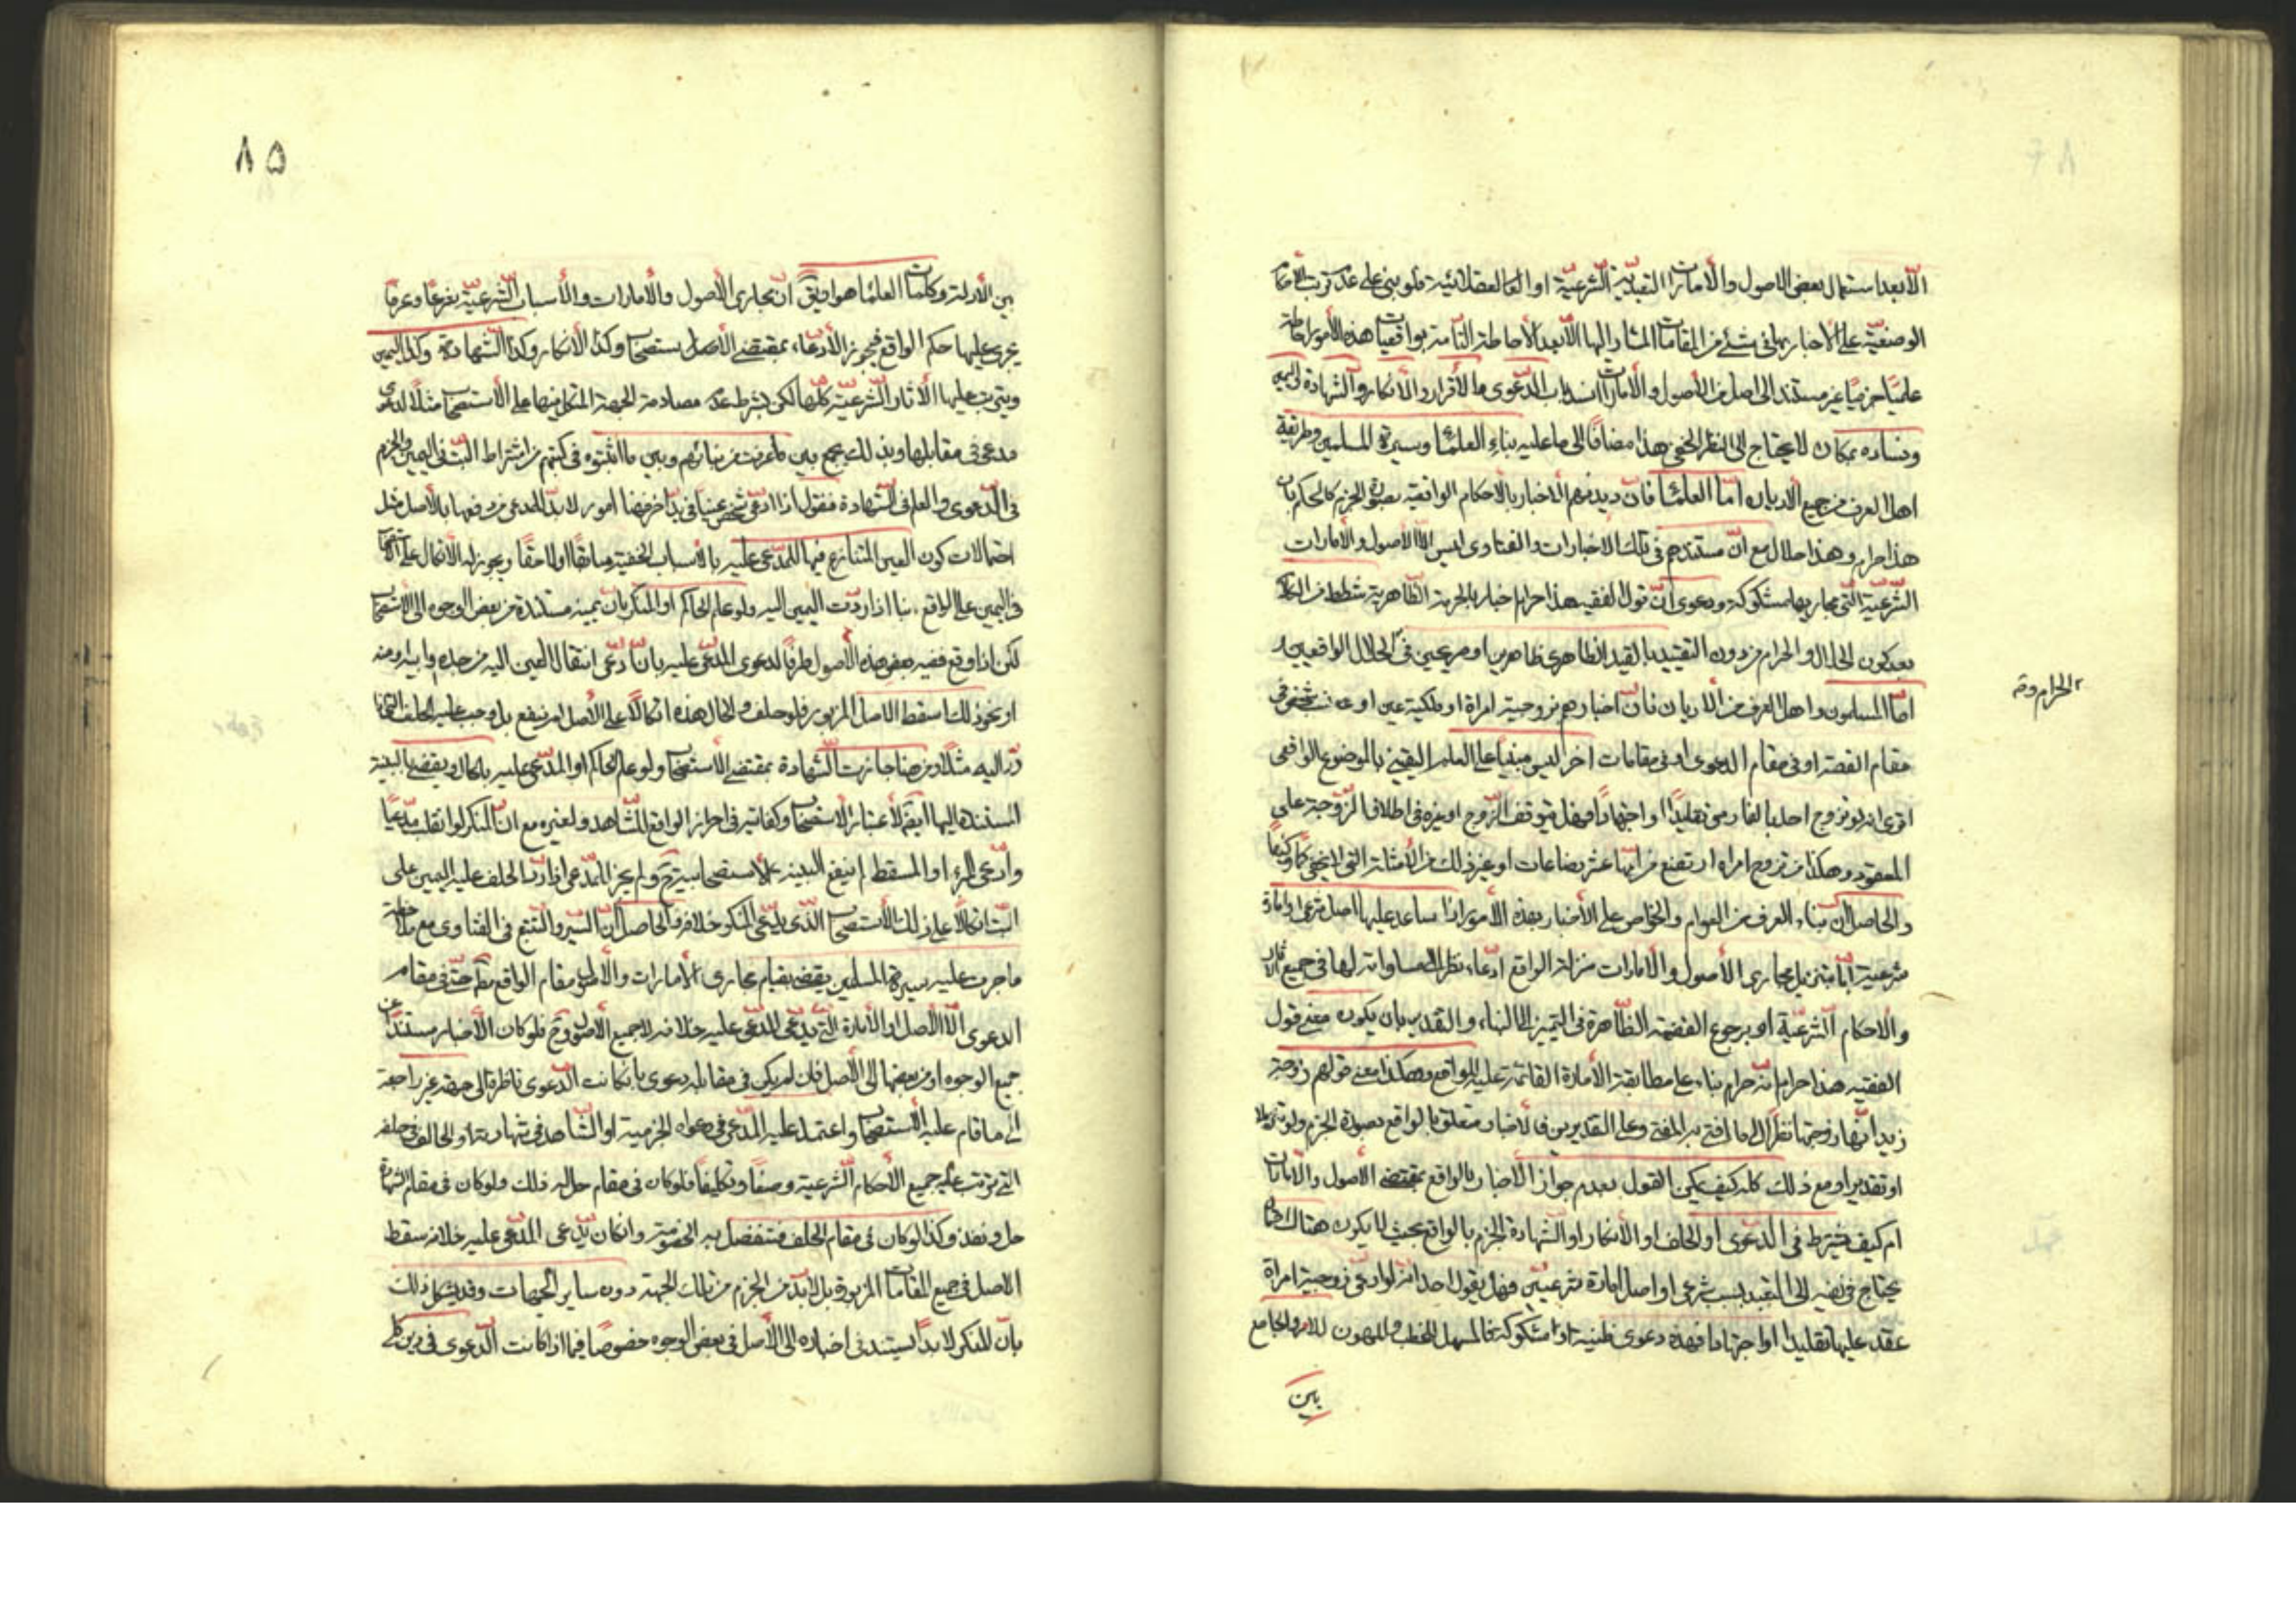 الا بعد استعمال بعض الاصول والامارات التعبدية الشرعية او العقلائية فلو بنى على عدم ترتب الاحكام
الوصفية على الاخبار بها فى شئ من المقامات المشار اليها الا بعد الاحاطة التامة بواقعيات هذه الامور احاطة
علميا جزميا غير مستند الى اصل من الأصول والأمارات انسد باب الدعوى والأقرار والأنكار والشهادة واليمين
وفساده بمكان لا يحتاج الى النظر الخفى هذا مضافا الى ما عليه بناء العلماء وسيرة المسلمين وطريقة
اهل العرف من جميع الاديان اما العلماء فان ديدنهم الاخبار بالاحكام الواقعية بصورة الجزم كالحكم بان
هذا حرام وهذا حلال مع ان مستندهم فى تلك الاخبارات والفتاوى ليس الا الاصول والأمارات
الشرعية التى مجاريها مشكوكة ودعوى ان قول الفقيه هذا حرام اخبار بالحرمة الظاهرية شطط من الكلام
بعد كون الحلال والحرام من دون التقييد بالقيد الظاهرى ظاهرين او صريحين فى الحلال الواقعيين
الحرام و
اما المسلمون واهل العرف من الاديان فان اخبارهم بزوجية امراة او ملكية عين او نسب شخص فى
مقام القصة او فى مقام الدعوى او فى مقامات اخر ليس مبنيا على العلم اليقينى بالموضوع الواقعى
افترى انه لو تزوج احد بالفارسى تقليدا او اجتهادا فهل يتوقف الزوج او غيره فى اطلاق الزوجة على
المعقودة وهكذا من تزوج امراة ارتضع من امها عشر رضاعات او غير ذلك من الأمثلة التى لا تخفى كما وكيفا
والحاصل ان بناء العرف من العوام والخواص على الأخبار بهذه الأمور اذا ساعد عليها اصل شرعى او امارة
شرعية اما بتنزيل مجارى الأصول والأمارات منزلة الواقع ادعاء نظرا الى مساواته لها فى جميع الاثار
والاحكام الشرعية او برجوع القضية الظاهرة فى التميز الى البناء والتقدير بان يكون معنى قول
الفقيه هذا حرام انه حرام بناء على مطابقة الأمارة القائمة عليه للواقع وهكذا معنى قولهم زوجة
زيد انها زوجتها نظرا الى ما افتى به المفتى وعلى التقديرين فالأخبار متعلق بالواقع بصورة الجزم ولو تنزيلا
او تقديرا ومع ذلك كله كيف يمكن القول بعدم جواز الأخبار بالواقع بمقتضى الأصول والأمارات
ام كيف يشترط فى الدعوى او الحلف او الأنكار او الشهادة الجزم بالواقع بحيث لا يكون هناك احتمال
يحتاج فى نفيه الى التعبد بسبب شرعى او اصل او امارة شرعيين فهل يقول احد انه لو ادعى زوجية امراة
عقد عليها تقليدا او اجتهادا فهذه دعوى ظنية او مشكوكة فالمسهل للخطب والمهون للامر والجامع
بين
٨٥
بين الأدلة وكلمات العلماء هو ان يق ان مجارى الأصول والأمارات والأسباب الشرعية شرعا وعرفا
يجرى عليها حكم الواقع فيجوز الأدعاء بمقتضى الأصل استصحابا وكذا الأنكار وكذا الشهادة وكذا اليمين
ويترتب عليها الاثار الشرعية كلها لكن بشرط عدم مصادمة الجهة المتكل فيها على الأستصحاب مثلا لدعوى
مدعى فى مقابلها وبذلك يجمع بين ما عرفت من بنائهم وبين ما اثبتوه فى كتبهم من اشتراط البت فى اليمين والجزم
فى الدعوى والعلم فى الشهادة فنقول اذا ادعى شخص عينا فى يد اخر فهنا امور لا بد للمدعى من دفعها بالأصل مثل
احتمالات كون العين المتنازع فيها للمدعى عليه بالأسباب الخفية سابقا او لاحقا ويجوز له الاتكال على الاستصحاب
فى اليمين على الواقع بتا اذا ردت اليمين اليه ولو علم الحاكم او المنكر بان يمينه مستندة من بعض الوجوه الى الأستصحاب
لكن اذا وقع قضية بعض هذه الأصول طرفا لدعوى المدعى عليه بان ادعى انتقال العين اليه من جده وابيه او منه
او نحو ذلك سقط الاصل المزبور فلو حلف والحال هذه اتكالا على الأصل لم ينفع بل وجب عليه الحلف
رد اليه مثلا ومن هنا جازت الشهادة بمقتضى الأستصحاب ولو علم الحاكم او المدعى عليه بالحال ويقضى بالبينة
المستندة اليها ايضا لأعتبار الاستصحاب وكفايته فى احراز الواقع للشاهد ولغيره مع ان المنكر لو انقلب مدعيا
وادعى البراء او المسقط لم ينفع البينة الاستصحابية ح ولم يجز للمدعى اذا رد الحلف عليه اليمين على
البت اتكالا على ذلك الأستصحاب الذى يدعى المنكر خلافه والحاصل ان السير والتتبع فى الفتاوى مع ملاحظة
ما جرت عليه سيرة المسلمين يقضى بقيام مجارى الأمارات والأصول مقام الواقع مطلقا حتى فى مقام
الدعوى الا الأصل او الأمارة التى يدعى المدعى عليه خلافه لا جميع الأصول وح فلو كان الأخبار مستندا عن
جميع الوجوه او من بعضها الى الأصل فان لم يكن فى مقابله دعوى بان كانت الدعوى ناظرة الى جهة غير راجعة
الى ما قام عليه الأستصحاب واعتمد عليه المدعى فى دعواه الجزمية او الشاهد فى شهادته او الحالف فى حلفه
التى يترتب عليه جميع الأحكام الشرعية وصفا وتكليفا فلو كان فى مقام حل له ذلك ولو كان فى مقام الشهادة
حل ونفذ وكذا لو كان فى مقام الحلف فتنفصل به الخصومة وان كان يدعى المدعى عليه خلافه سقط
الاصل فى جميع المقامات المزبورة بل لابد من الجزم من تلك الجهة دون ساير الجهات وقد يشكل ذلك
بان المنكر لابد يستند فى اخباره الى الأصل فى بعض الوجوه خصوصا فيما اذا كانت الدعوى فى دين كلى